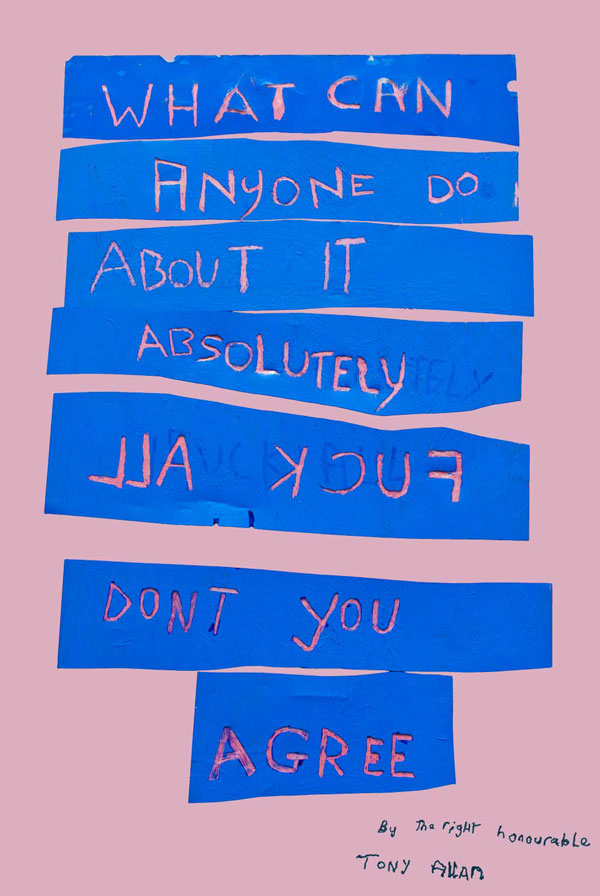 WHAT CAN
ANYONE DO
ABOUT IT
ABSOLUTELY
FUCK ALL
DONT YOU
AGREE
By The right honourable
TONY Allan